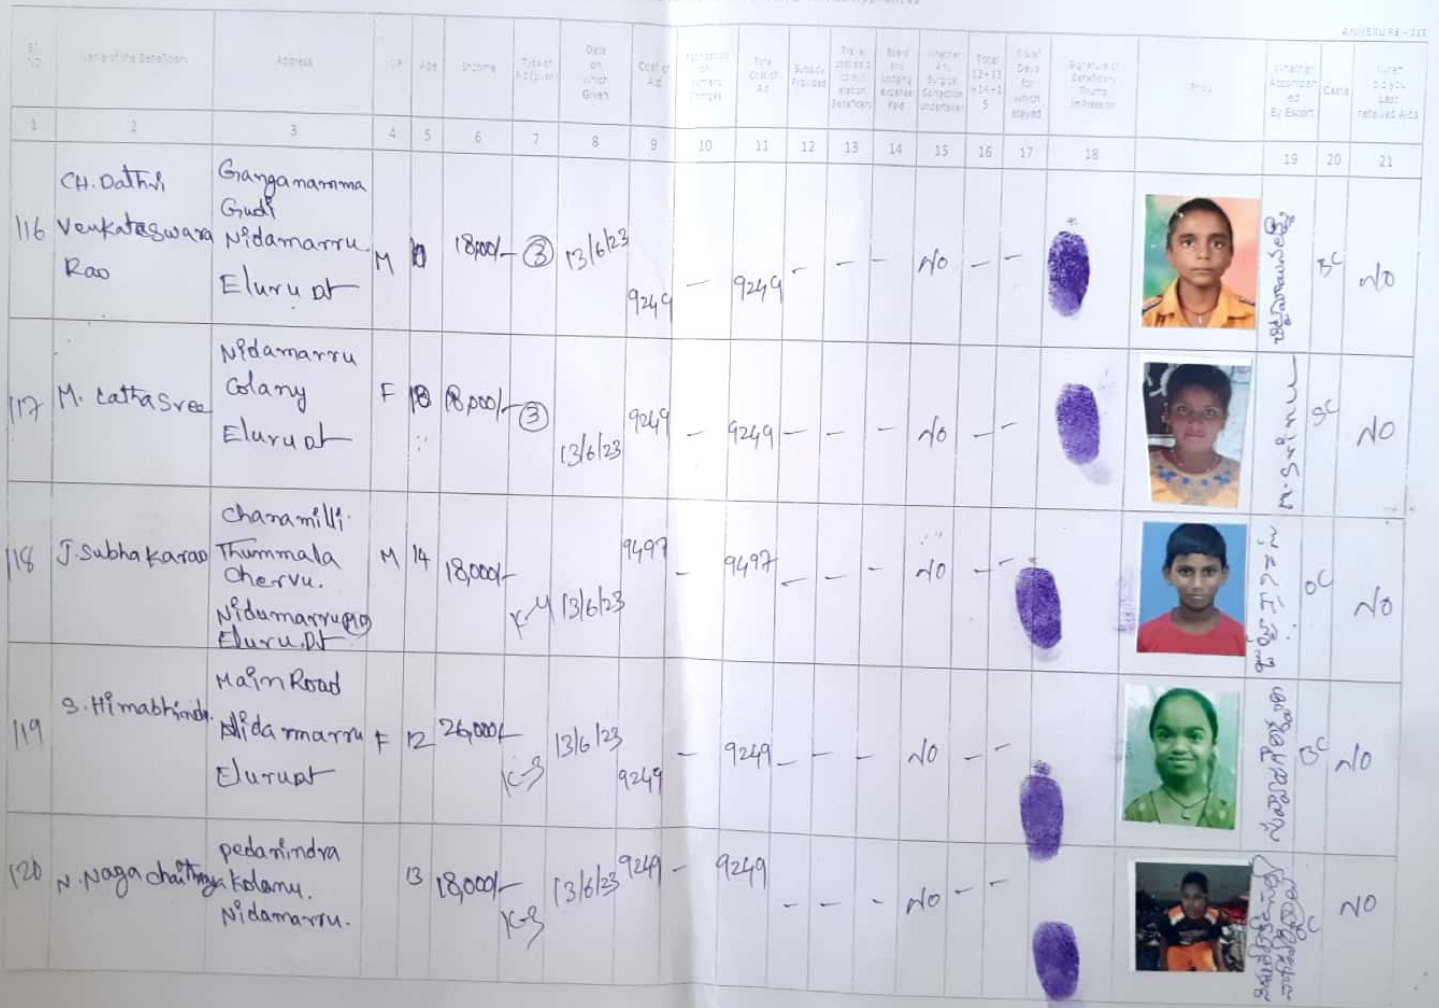 ANNEXURE - III
Sl. No
Name of the Beneficiary
Address
M/F
Age
Income
Type of Aid (given)
Date on Which Given
Cost of Aid
Total Cost of Aid
Subsidy Provided
Board and Lodging Expense Paid
Whether Any Surgical Correction Undertaken
Total 12+13+14+15
No of Days for which stayed
Signature of Beneficiary Thumb Impression
Photo
Whether Accompanied By Escort
Caste
1 2 3 4 5 6 7 8 9 10 11 12 13 14 15 16 17 18 19 20 21
116
CH. Dathri
Venkateswara
Rao
Ganganamma
Gudi
Nidamarru
Eluru Dt
M 18,000/- 3 13/6/23 9249 - 9249 - - - NO - - BC NO
117
M. Latha Sree
Nidamarru
Colany
Eluru Dt
F 18,000/- 3 13/6/23 9249 - 9249 - - - NO - - M. Srinu NO
118
J. Subhakarao
Chanamilli
Thummala
Chervu.
Nidumarru MD
Eluru. Dt
M 14 18,000/- K-4 13/6/23 9497 - 9497 - - - NO - - OC NO
119
S. Himabhindu
Main Road
Nidamarru
Eluru Dt
F 12 26,000/- K-3 13/6/23 9249 - 9249 - - - NO - - NO
120
N. Naga Chaithnya
Pedanindra
Kolanu.
Nidamarru.
13 18,000/- K-3 13/6/23 9249 - 9249 - - - NO - - NO